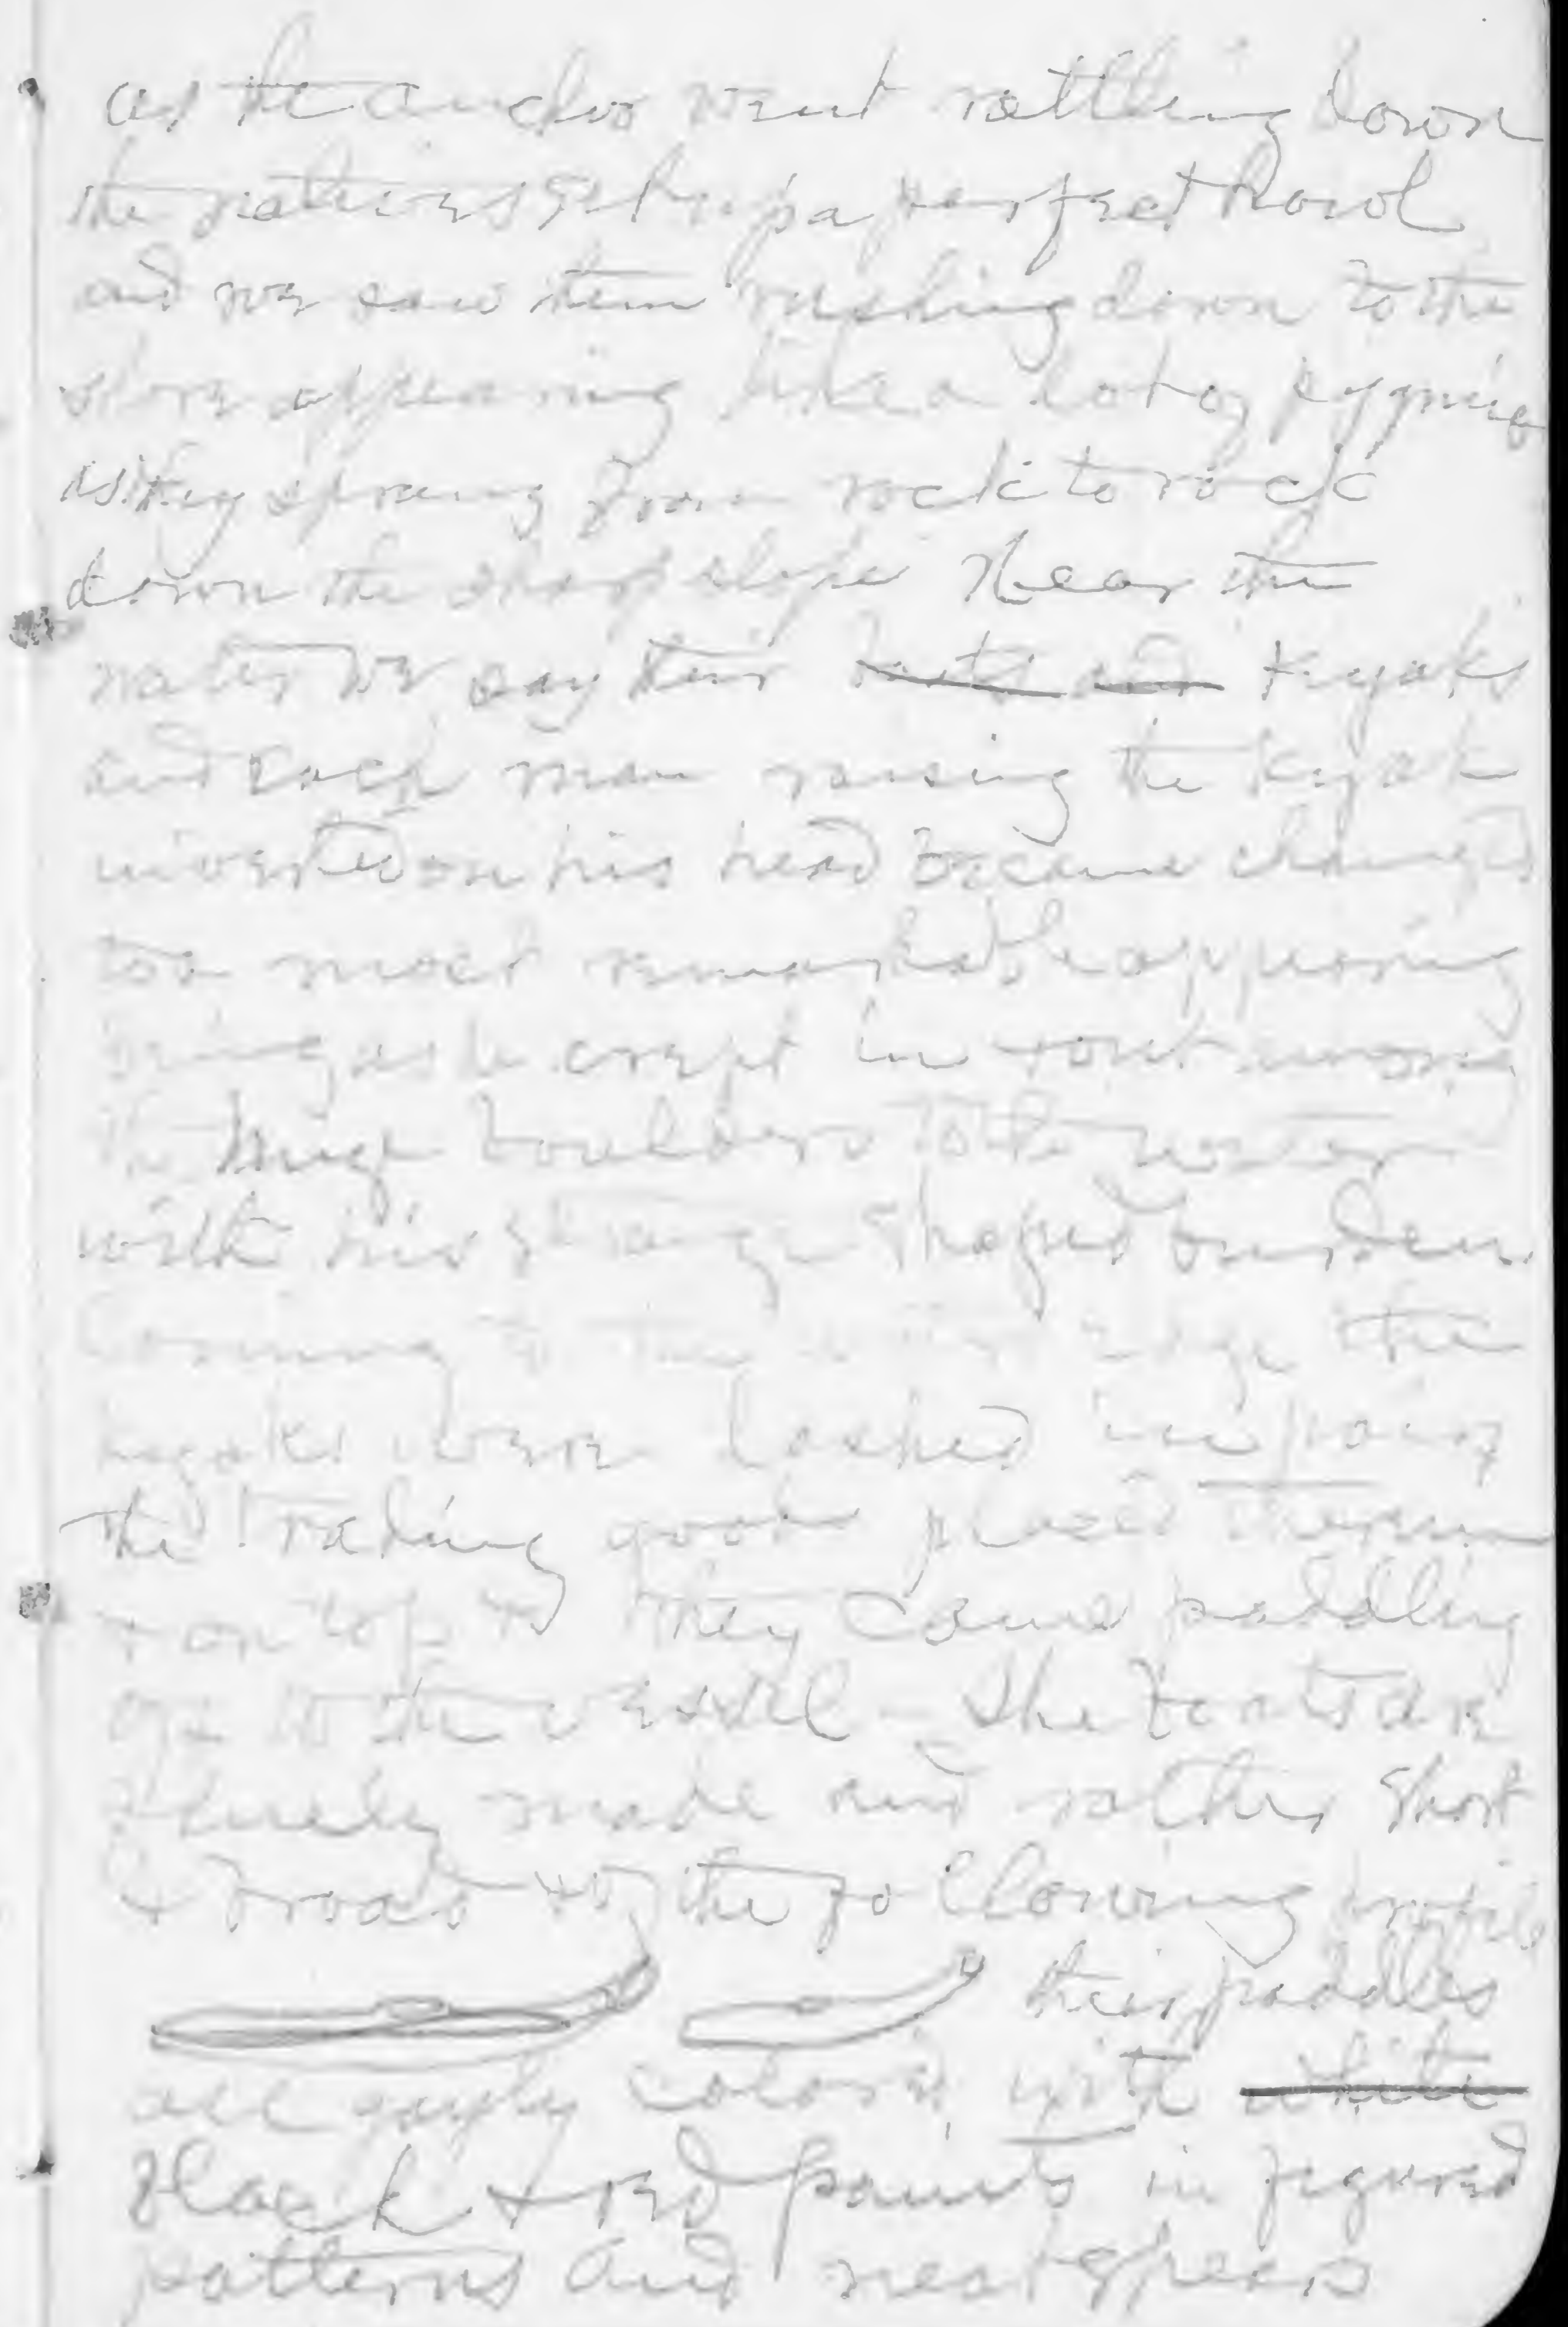 as the anchor went rattling down
the natives set up a perfect howl
and we saw them rushing down to the
shore appearing like a lot of pygmies
as they sprang from rock to rock
down the sharp slope Near the
water we say their boats and Kyaks
and each man raising the Kyak
inverted on his head became changed
to a most remarkable appearing
being as he crept in & out among
the huge boulders to the water
with his strange shaped burden.
Coming to the edge the
kyaks were lashed in pairs
the trading goods placed therein
& on top & they came paddling
off to the vessel — The boats are
finely made and rather short
& broad & the following profile
their paddles
all gayly colored with white
black & red paints in figured
patterns and neat spears